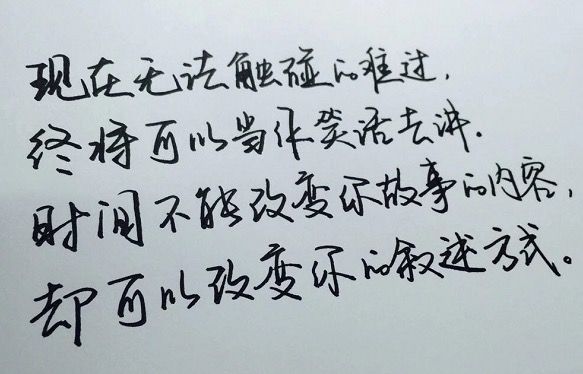 现在无法触碰的难过,
终将可以当作笑话去讲.
时间不能改变你故事的内容,
却可以改变你的叙述方式。